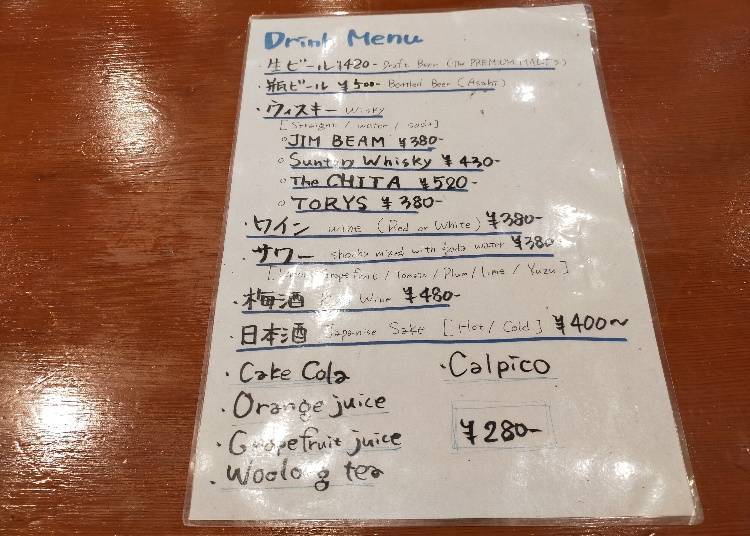 Drink Menu
・生ビール ¥420- Draft Beer (The PREMIUM MALT'S)
・瓶ビール ¥500- Bottled Beer (Asahi)
・ウィスキー Whisky
[Straight / water / soda]
○JIM BEAM ¥380-
○Suntory Whisky ¥430-
○The CHITA ¥520-
○TORYS ¥380-
・ワイン wine (Red or White) ¥380-
・サワー shochu mixed with soda water ¥380-
[ Grapefruit / Tomato / Plum / Lime / Yuzu ]
・梅酒 Wine ¥480-
・日本酒 Japanise Sake [Hot / Cold] ¥400〜
・Cake Cola
・Calpico
・Orange juice
・Grapefruit juice
¥280-
・Woolong tea